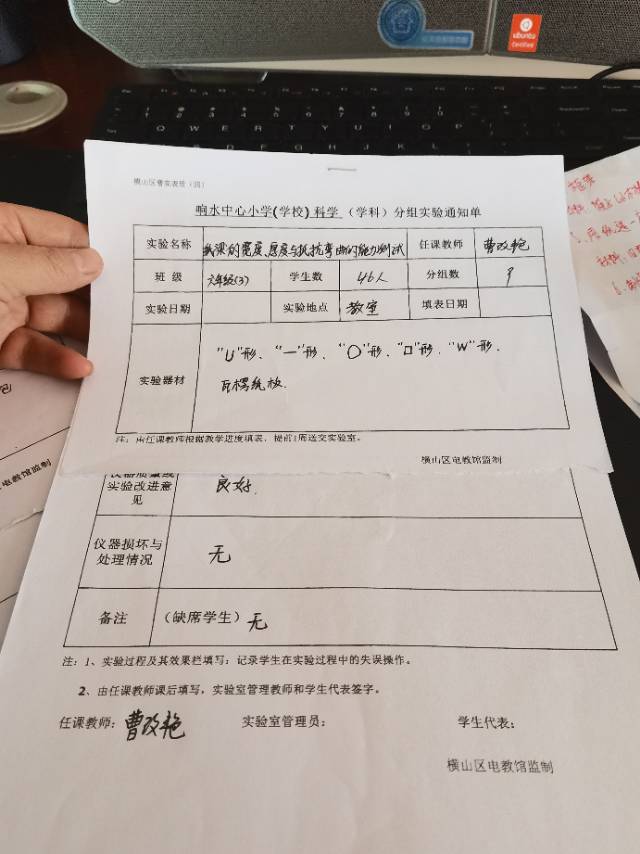 ubuntu
Certified
Q W E R T Y U I O P
横山区普实表册（四）
响水中心小学(学校)科学（学科）分组实验通知单
实验名称 纸梁的宽度、厚度与抵抗弯曲的能力测试 任课教师 曹改艳
班 级 六年级(3) 学生数 46人 分组数 9
实验日期 实验地点 教室 填表日期
实验器材 "U"形、"一"形、"O"形、"口"形、"W"形、
瓦楞纸板.
注：由任课教师根据教学进度填表，提前1周送交实验室。
横山区电教馆监制
实验改进意见 良好.
仪器损坏与处理情况 无
备注 （缺席学生）无
注：1、实验过程及其效果栏填写：记录学生在实验过程中的失误操作。
2、由任课教师课后填写，实验室管理教师和学生代表签字。
任课教师：曹改艳 实验室管理员： 学生代表：
横山区电教馆监制
电教馆监制